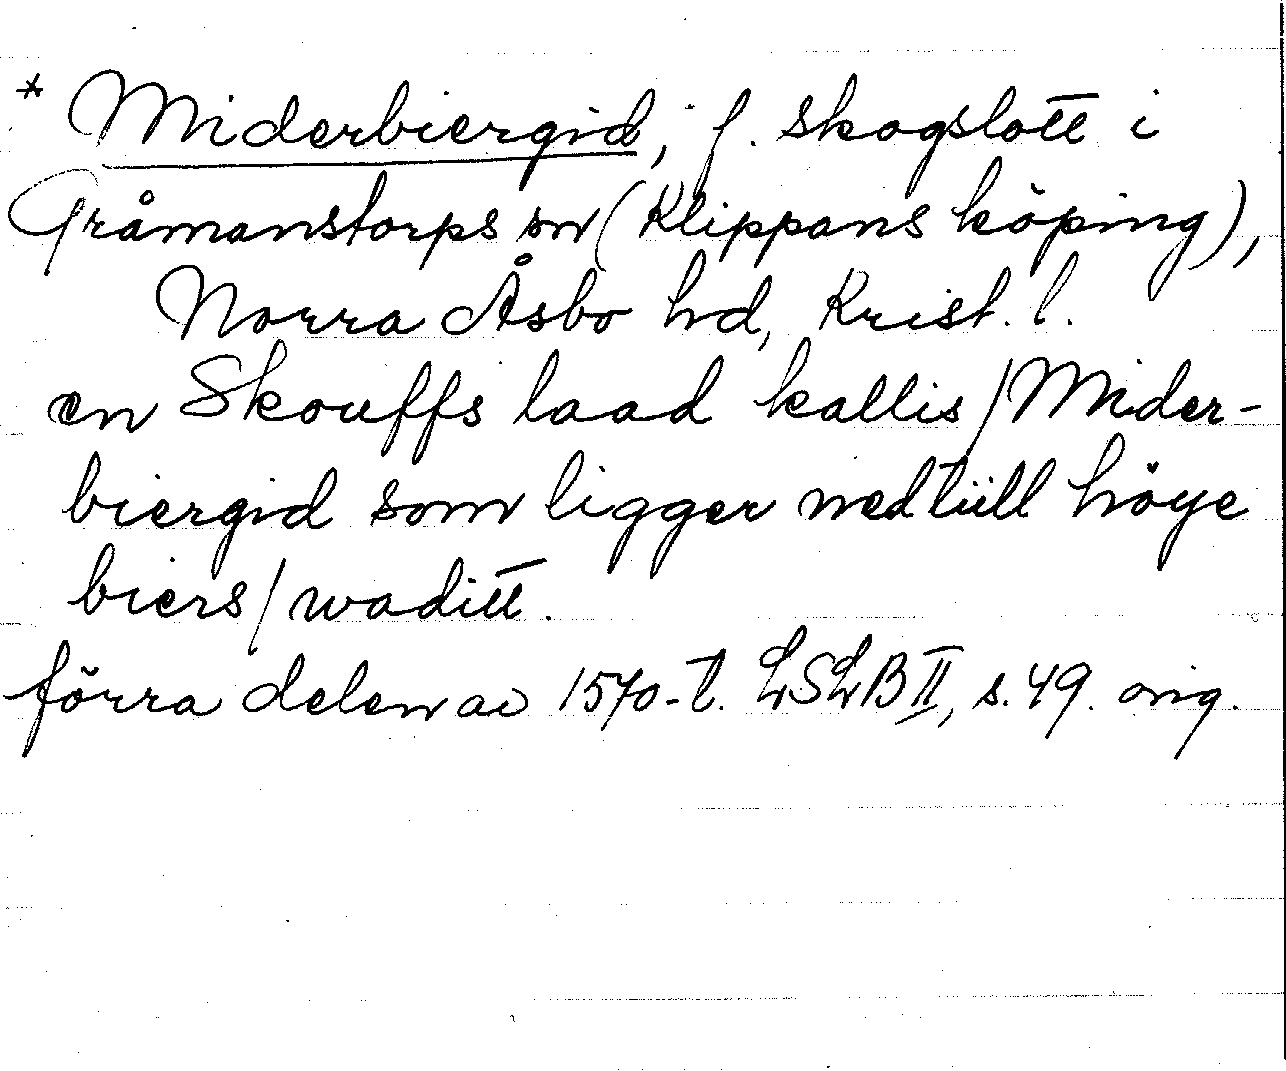 * Miderbiergid, f. skogslott i
Gråmanstorps sn (Klippans köping),
Norra Åsbo hd, Krist. l.
en Skouffs laad kallis / Mider-
biergid som ligger ned tiill höye
biers / waditt.
förra delen av 1570-t. LSLB II, s. 49. orig.